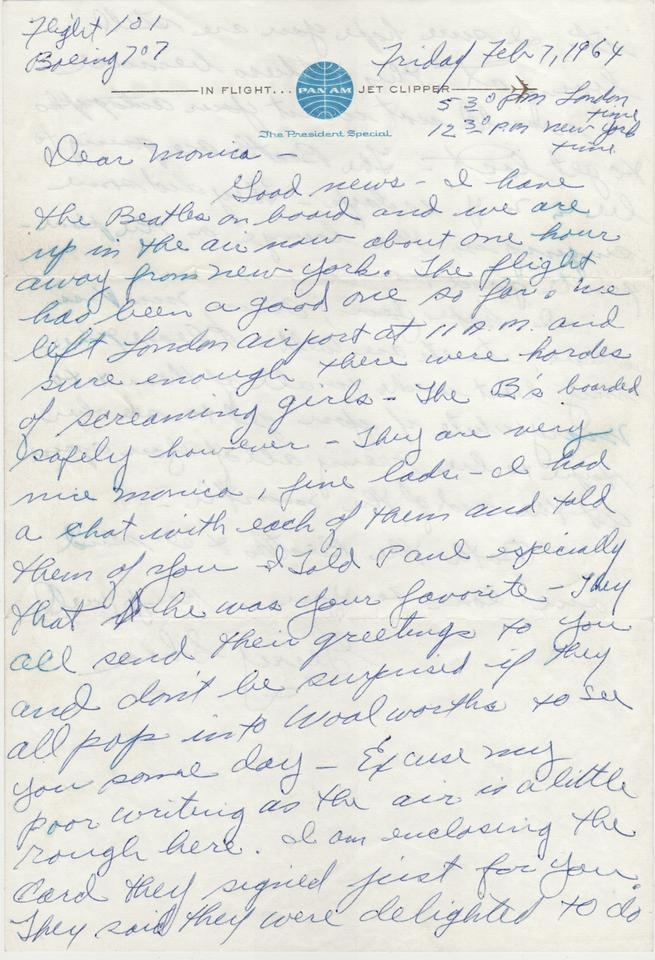 Flight 101
Boeing 707
Friday Feb 7, 1964
IN FLIGHT... PAN AM JET CLIPPER
The President Special
5 30 PM London time
12 30 PM New York time
Dear Monica –
Good news – I have
the Beatles on board and we are
up in the air now about one hour
away from New York. The flight
has been a good one so far. We
left London airport at 11 A.M. and
sure enough there were hordes
of screaming girls – The B's boarded
safely however – They are very
nice Monica, fine lads – I had
a chat with each of them and told
them of you I told Paul especially
that he was your favorite – They
all send their greetings to you
and don't be surprised if they
all pop into Woolworths to see
you some day – Excuse my
poor writing as the air is a little
rough here. I am enclosing the
card they signed just for you.
They said they were delighted to do